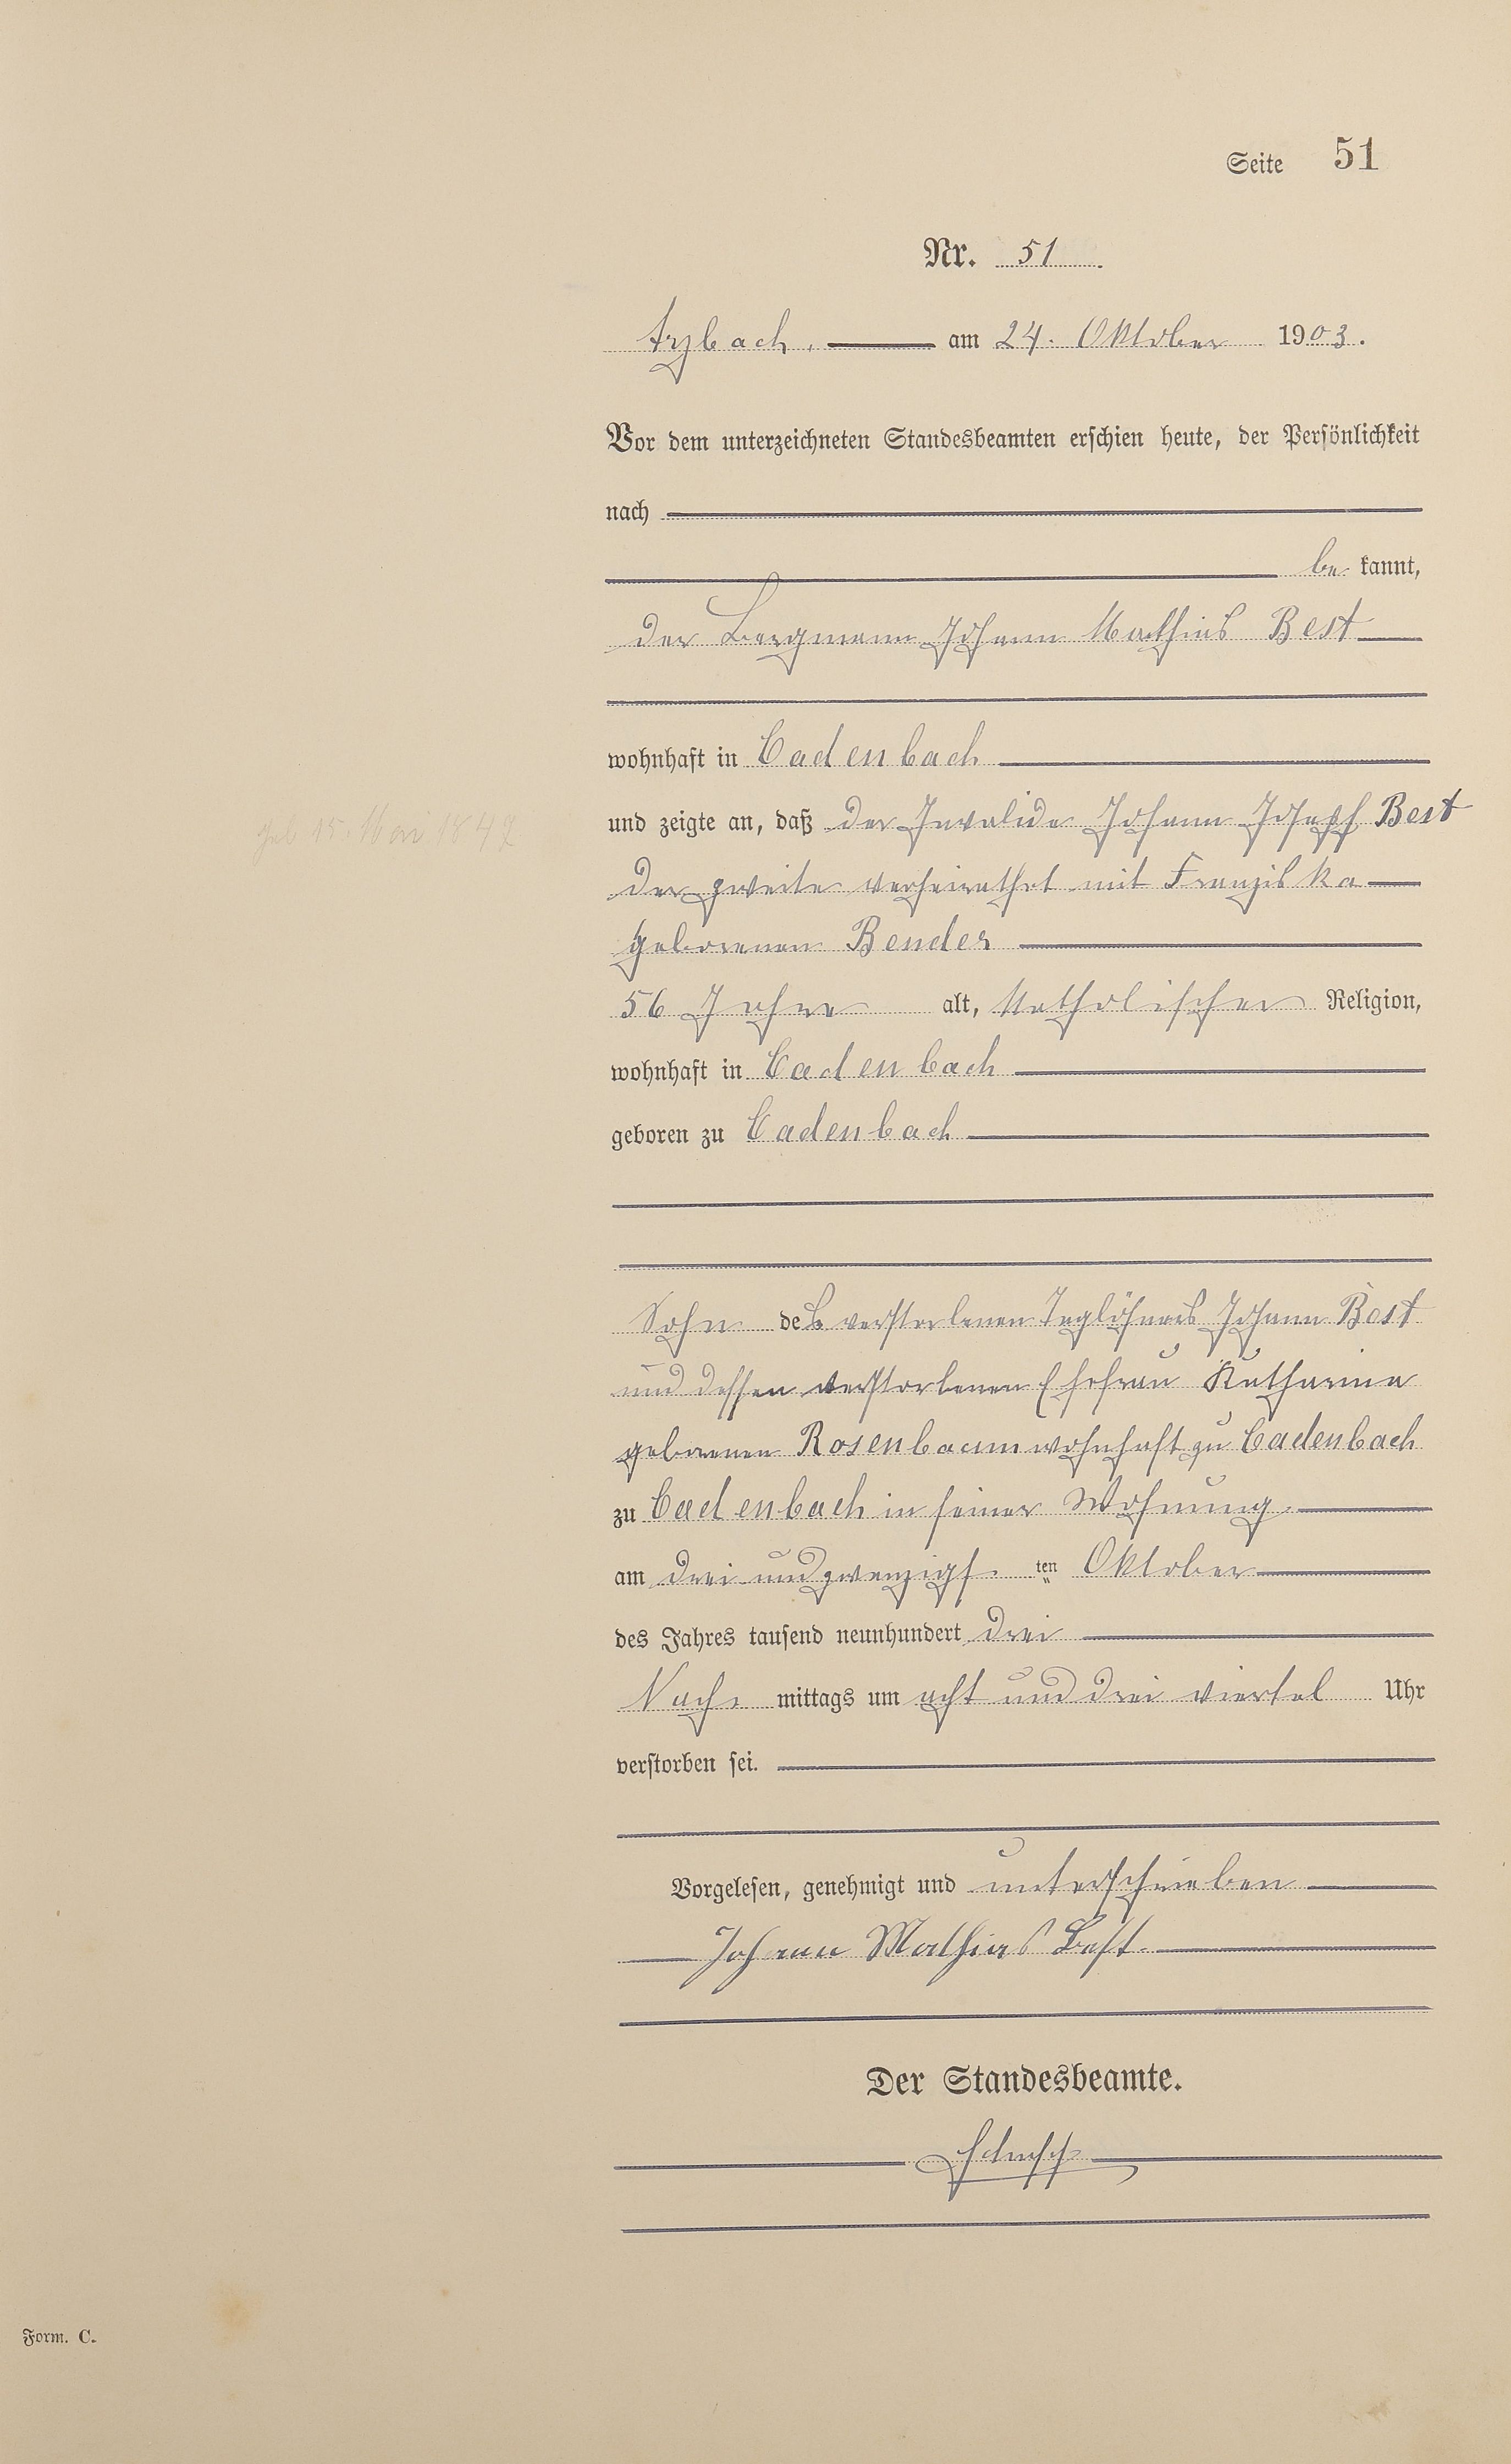 Seite 51
Nr. 51.
Arzbach, am 24. Oktober 1903.
Vor dem unterzeichneten Standesbeamten erschien heute, der Persönlichkeit
nach
be kannt,
der Bergmann Johann Mathias Best
wohnhaft in Cadenbach
geb 15. Mai 1847
und zeigte an, daß der Invalide Johann Josepf Best
der zweite verheirathet mit Franziska
geborenen Bender
56 Jahre alt, katholischer Religion,
wohnhaft in Cadenbach
geboren zu Cadenbach
Sohn des verstorbenen Taglöhners Johann Best
und dessen verstorbenen Ehefrau Katharina
geborenen Rosenbaum wohnhaft zu Cadenbach
zu Cadenbach in seiner Wohnung,
am drei und zwanzigs ten Oktober
des Jahres tausend neunhundert drei
Nach mittags um acht und drei viertel Uhr
verstorben sei.
Vorgelesen, genehmigt und unterschrieben
Johann Mathias Best.
Der Standesbeamte.
Form. C.